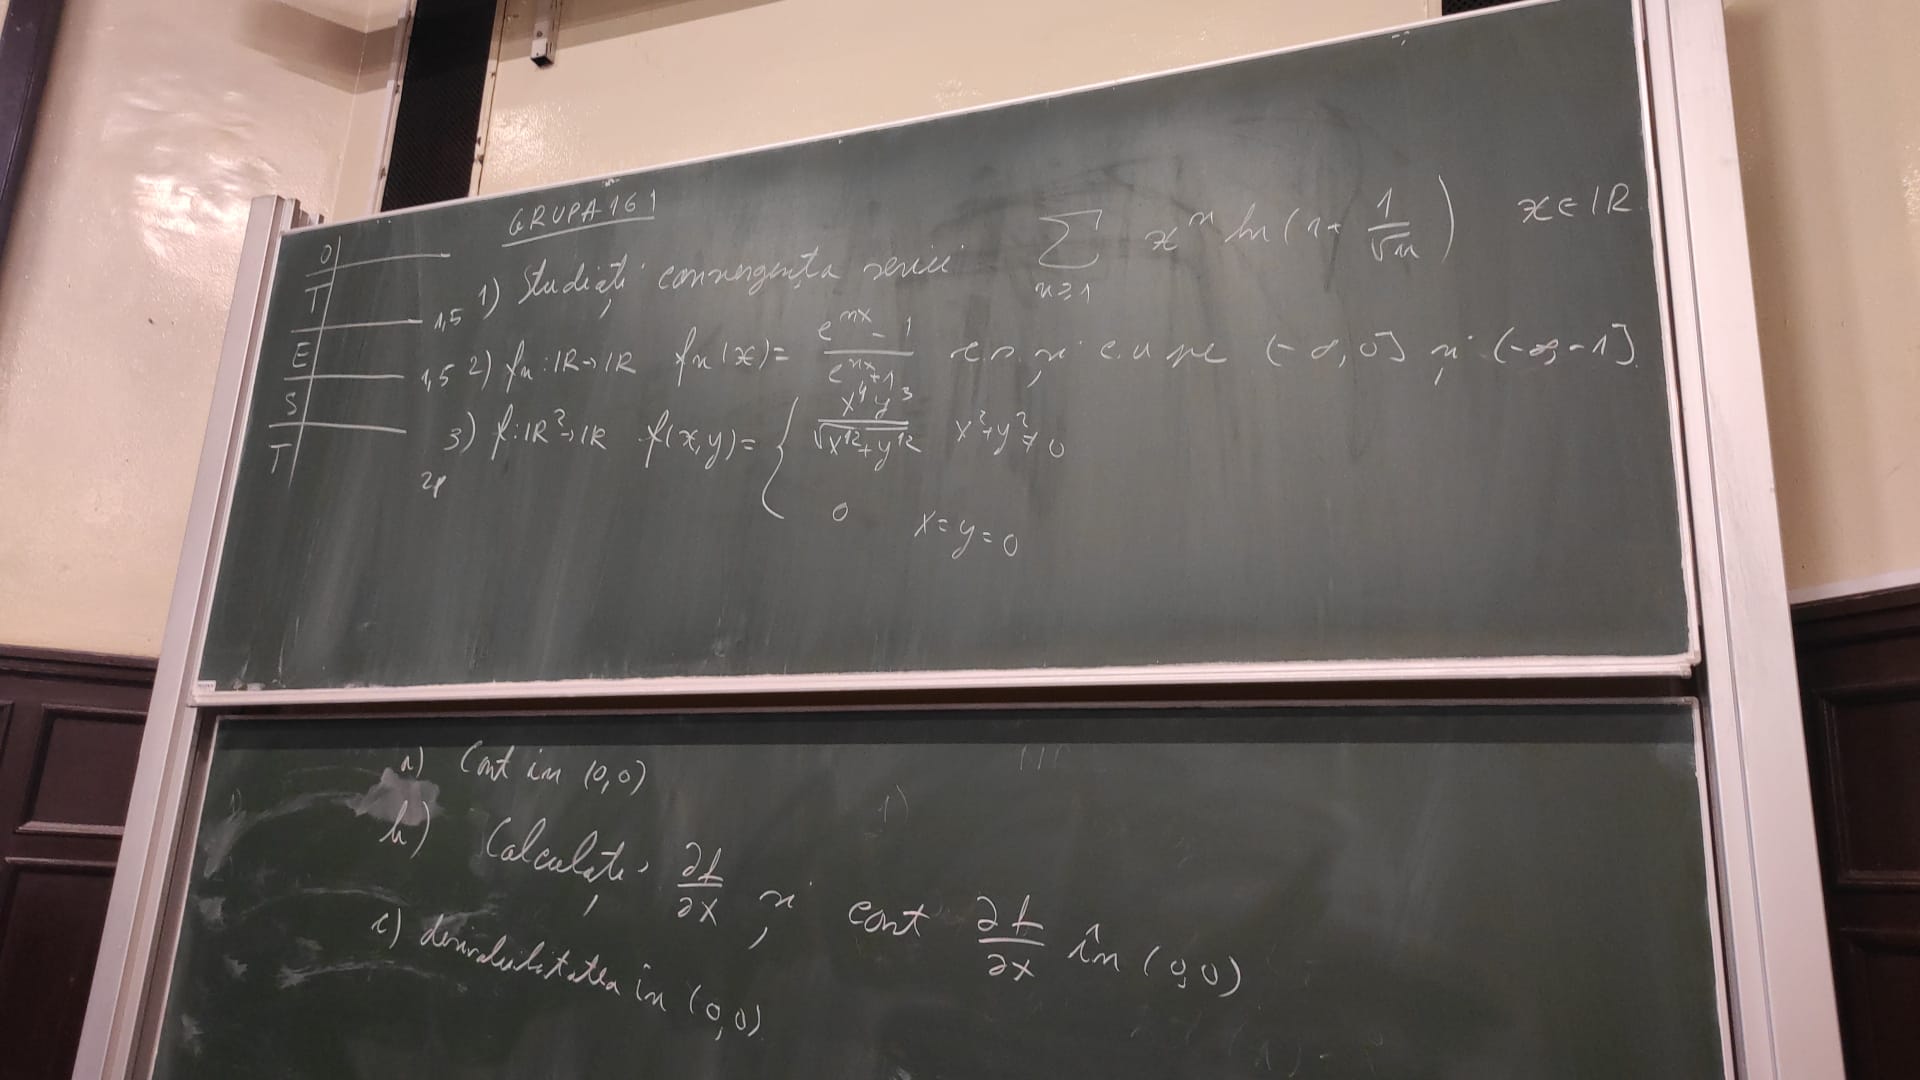 GRUPA 161
O
T
E
S
T
1,5 1) Studiați convergența seriei ∑_{n≥1} x^n ln(1+ 1/√n) x∈ℝ
1,5 2) f_n:ℝ→ℝ f_n(x)= (e^{nx} - 1)/(e^{nx}+1) c.s. și c.u pe (-∞,0] și (-∞,-1]
2p 3) f:ℝ²→ℝ f(x,y)= { x⁴y³/√(x¹²+y¹²) x²+y²≠0
0 x=y=0
a) Cont în (0,0)
b) Calculați ∂f/∂x și cont ∂f/∂x în (0,0)
c) derivabilitatea în (0,0)